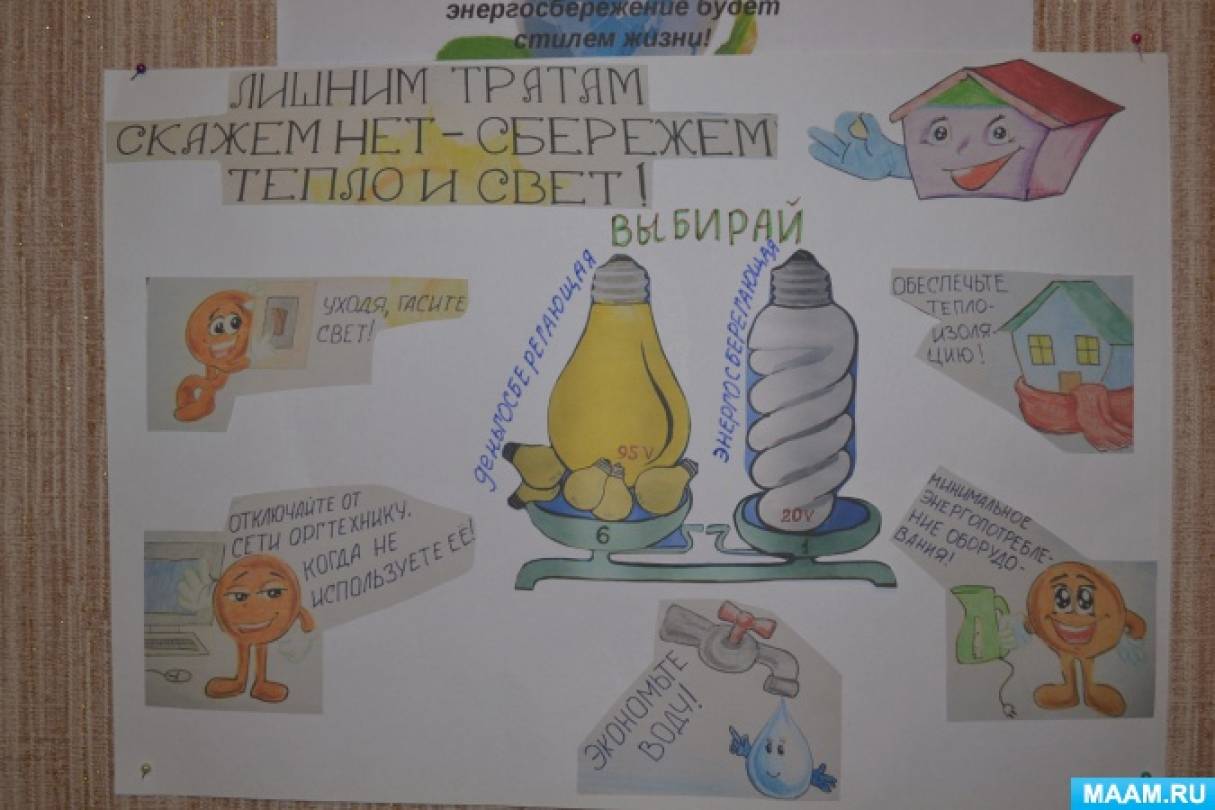 энергосбережение будет
стилем жизни!
ЛИШНИМ ТРАТАМ
СКАЖЕМ НЕТ - СБЕРЕЖЕМ
ТЕПЛО И СВЕТ!
ВЫБИРАЙ
ДЕНЬГОСБЕРЕГАЮЩАЯ
ЭНЕРГОСБЕРЕГАЮЩАЯ
УХОДЯ, ГАСИТЕ
СВЕТ!
ОБЕСПЕЧЬТЕ
ТЕПЛО-
ИЗОЛЯ-
ЦИЮ!
95V
20V
6
1
ОТКЛЮЧАЙТЕ ОТ
СЕТИ ОРГТЕХНИКУ.
КОГДА НЕ
ИСПОЛЬЗУЕТЕ ЕЁ!
МИНИМАЛЬНОЕ
ЭНЕРГОПОТРЕБЛЕ-
НИЕ ОБОРУДО-
ВАНИЯ!
ЭКОНОМЬТЕ
ВОДУ!
MAAM.RU